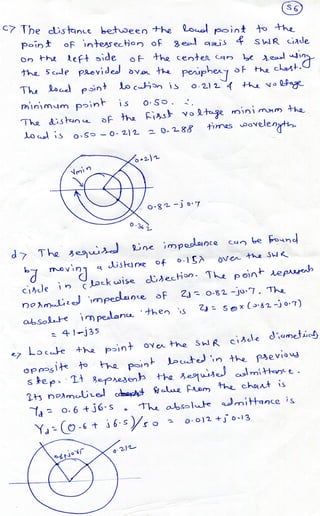 56
c> The distance between the load point to the
point of intersection of real axis & SWR circle
on the left side of the center can be read using
the scale provided over the periphery of the chart.
The load point location is 0.212 & the voltage
minimum point is 0.50. ∴
The distance of the first voltage minimum the
load is 0.50 - 0.212 = 0.288 times wavelength
Vmin
0.212
0.82 - j0.7
0.362
d> The required line impedance can be found
by moving a distance of 0.15λ over the SWR
circle in clockwise direction. The point represents
normalized impedance of Zd = 0.82 - j0.7. The
absolute impedance then is Zd = 50x(0.82-j0.7)
= 41-j35
e> Locate the point over the SWR circle diametrically
opposite to the point located in the previous
step. It represents the required admittance.
Its normalized value from the chart is
Yd = 0.6 + j6.5 . The absolute admittance is
Yd = (0.6 + j6.5)/50 = 0.012 + j0.13
0.212